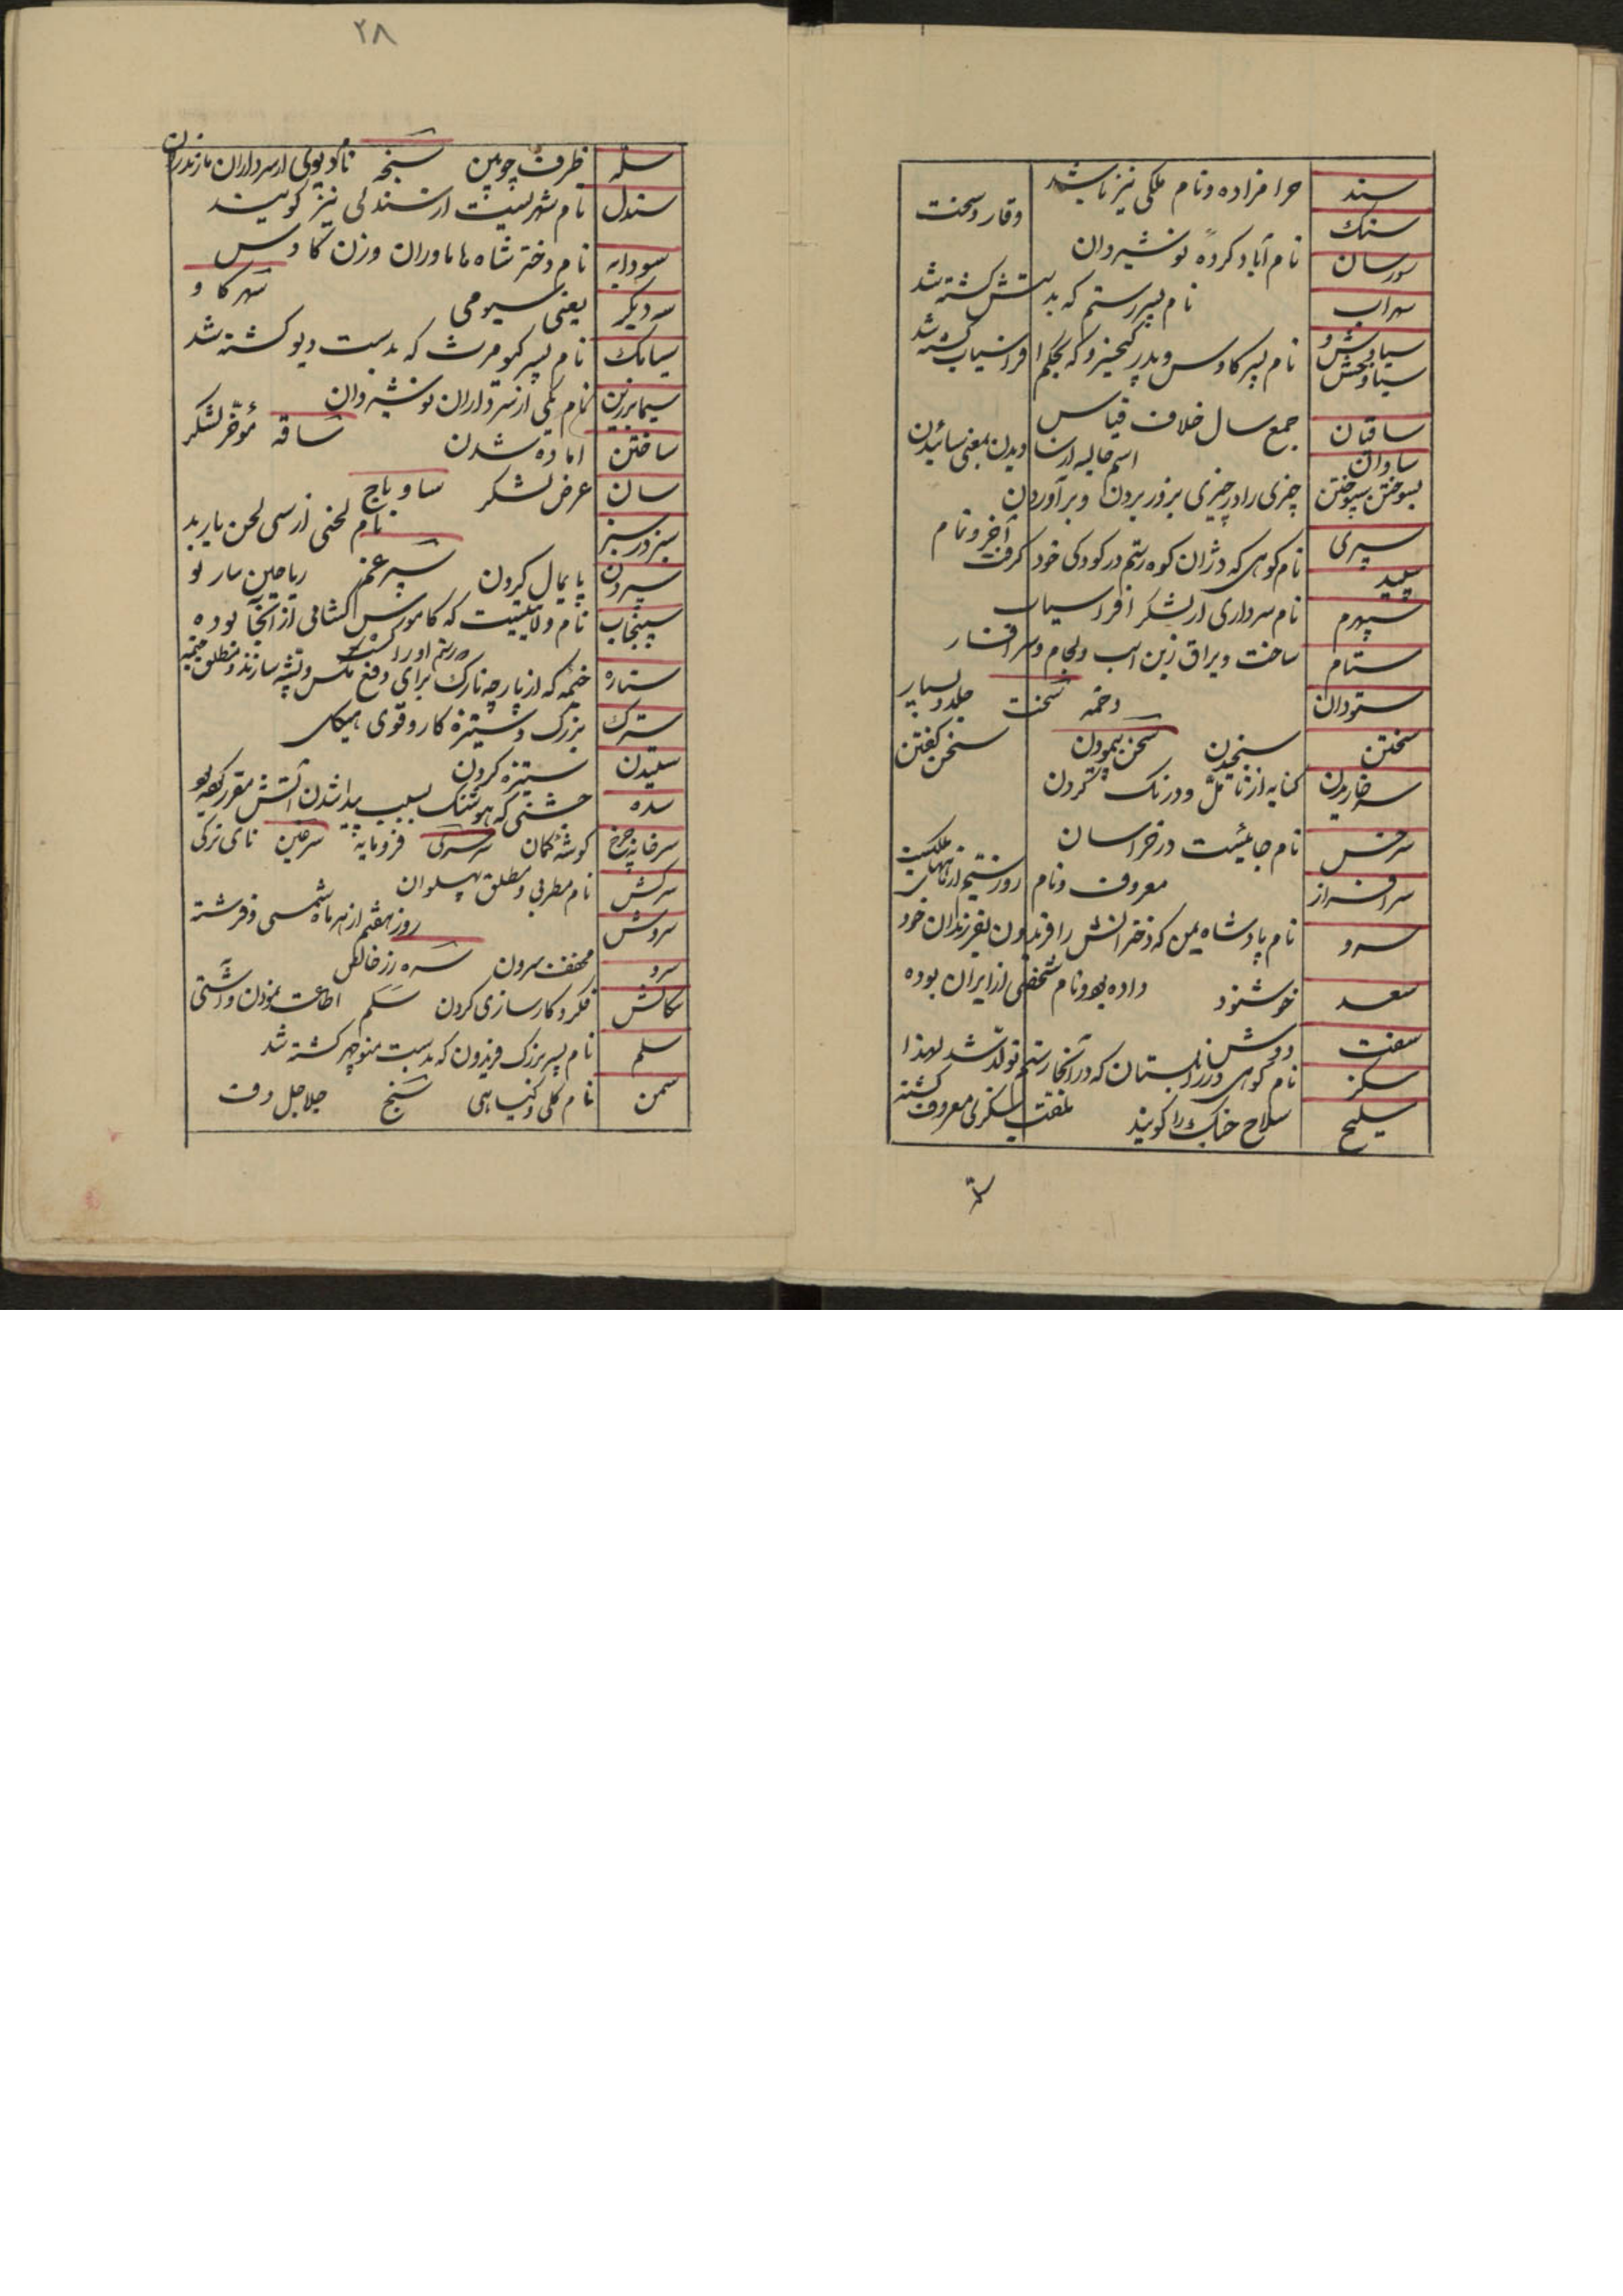 سند حرامزاده و نام ملکی نیز باشد
سنک وقار و سخت
سورسان نام آباد کردهٔ نوشیروان
سهراب نام پسر رستم که بدستش کشته شد
سیاوش و سیاوخش نام پسر کاوس و پدر کیخسرو که بحکم افراسیاب کشته شد
سالیان جمع سال خلاف قیاس
ساوان اسم حالیه از ساویدن بمعنی سائیدن
سپوختن چیزی را در چیزی بزور بردن و برآوردن
سپری آخر و تمام
سپید نام کوهی که دژ آن کوه رستم در کودکی خود کرفت
سپهرم نام سرداری از لشکر افراسیاب
ستام ساخت و یراق زین اسب و لجام و سرافسار
ستودان دخمه سخت جلد و بسیار
سختن سنجیدن سخن پیمودن سخن کفتن
سرخاریدن کنایه از تأمل و درنک کردن
سرخس نام جائیست در خراسان
سرافراز معروف و نام
سرو نام پادشاه یمن که دخترانش را فریدون بفرزندان خود
داده بود و نام شخصی از ایران بوده
سعد خوشنود
سفت دوش
سکز نام کوهی در زابلستان که در آنجا رستم تولد شد لهذا
بلقب سکزی معروف کشته
سلیح سلاح جنک را کویند
سله
٢٨
سله ظرف چوبین سنجه نام دیوی از سرداران مازندران
سندل نام شهریست از سندلی نیز کویند
سودابه نام دختر شاه هاماوران و زن کاوس
سه دیکر یعنی سیومی
سیامک نام پسر کیومرث که بدست دیو کشته شد
سیمابرزین نام یکی از سرداران نوشیروان
ساختن اماده شدن ساقه مؤخر لشکر
سان عرض لشکر ساو باج
سبز در سبز نام لحنی از سی لحن باربد
سپردن پایمال کردن سپرغم ریاحین
سپنجاب نام ولایتیست که کاموس کشانی از آنجا بوده
رستم او را کشت
ستاره خیمه که از پارچه نازک برای دفع مکس و پشه سازند و مطلق خیمه
سترک بزرک و ستیزه کار و قوی هیکل
ستیدن ستیزه کردن
سده جشنی که هوشنک بسبب پیدا شدن آتش مقرر
سرخانه چرخ کوشه کمان سرسری فرومایه سرغین نای ترکی
سرکش نام مطربی و مطلق پهلوان
سروش روز هفتم از هر ماه شمسی و فرشته
سرو مخفف سرون سره زر خالص
سکالش فکر و کارسازی کردن سلم اطاعت نمودن و آشتی
سلم نام پسر بزرک فریدون که بدست منوچهر کشته شد
سمن نام کلی و کیاهی سنج جلاجل دف